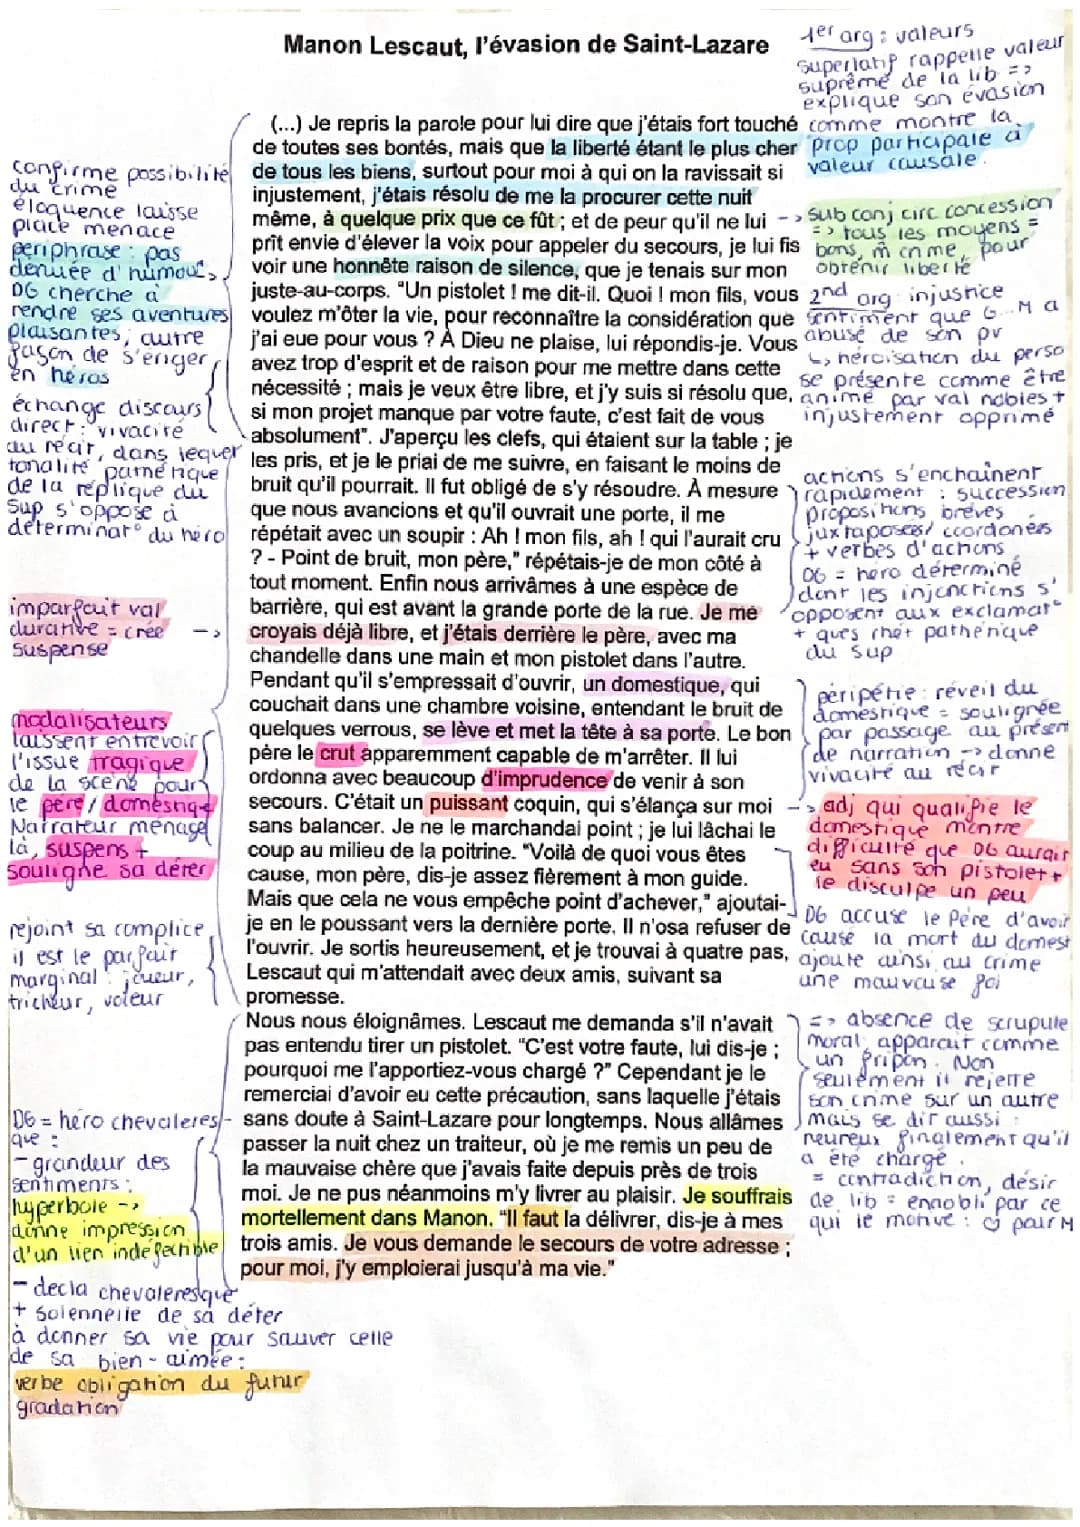 Manon Lescaut, l'évasion de Saint-Lazare
1er arg : valeurs
superlatif rappelle valeur
suprême de la lib =>
explique son évasion
comme montre la
prop participale à
valeur causale.
-> sub conj circ concession
=> tous les moyens =
bons, m̂ crime, pour
obtenir liberté
2nd arg injustice
sentiment que G...M a
abusé de son pv
↳ héroïsation du perso
se présente comme être
animé par val nobles +
injustement opprimé
actions s'enchaînent
rapidement : succession
propositions brèves
juxtaposées/coordonées
+ verbes d'actions
DG = héro déterminé
dont les injonctions s'
opposent aux exclamat°
+ ques rhét pathétique
du Sup
péripétie : réveil du
domestique = soulignée
par passage au présent
de narration -> donne
vivacité au récit
-> adj qui qualifie le
domestique montre
difficulté que DG aurait
eu sans son pistolet +
le disculpe un peu
DG accuse le Père d'avoir
causé la mort du domest
ajoute ainsi au crime
une mauvaise foi
=> absence de scrupule
moral, apparaît comme
un fripon. Non
seulement il rejette
son crime sur un autre
mais se dit aussi
heureux finalement qu'il
a été chargé.
= contradiction, désir
de lib = ennobli par ce
qui le motive : ♡ pour M
(...) Je repris la parole pour lui dire que j'étais fort touché
de toutes ses bontés, mais que la liberté étant le plus cher
de tous les biens, surtout pour moi à qui on la ravissait si
injustement, j'étais résolu de me la procurer cette nuit
même, à quelque prix que ce fût ; et de peur qu'il ne lui
prît envie d'élever la voix pour appeler du secours, je lui fis
voir une honnête raison de silence, que je tenais sur mon
juste-au-corps. "Un pistolet ! me dit-il. Quoi ! mon fils, vous
voulez m'ôter la vie, pour reconnaître la considération que
j'ai eue pour vous ? À Dieu ne plaise, lui répondis-je. Vous
avez trop d'esprit et de raison pour me mettre dans cette
nécessité ; mais je veux être libre, et j'y suis si résolu que,
si mon projet manque par votre faute, c'est fait de vous
absolument". J'aperçu les clefs, qui étaient sur la table ; je
les pris, et je le priai de me suivre, en faisant le moins de
bruit qu'il pourrait. Il fut obligé de s'y résoudre. À mesure
que nous avancions et qu'il ouvrait une porte, il me
répétait avec un soupir : Ah ! mon fils, ah ! qui l'aurait cru
? - Point de bruit, mon père," répétais-je de mon côté à
tout moment. Enfin nous arrivâmes à une espèce de
barrière, qui est avant la grande porte de la rue. Je me
croyais déjà libre, et j'étais derrière le père, avec ma
chandelle dans une main et mon pistolet dans l'autre.
Pendant qu'il s'empressait d'ouvrir, un domestique, qui
couchait dans une chambre voisine, entendant le bruit de
quelques verrous, se lève et met la tête à sa porte. Le bon
père le crut apparemment capable de m'arrêter. Il lui
ordonna avec beaucoup d'imprudence de venir à son
secours. C'était un puissant coquin, qui s'élança sur moi
sans balancer. Je ne le marchandai point ; je lui lâchai le
coup au milieu de la poitrine. "Voilà de quoi vous êtes
cause, mon père, dis-je assez fièrement à mon guide.
Mais que cela ne vous empêche point d'achever," ajoutai-
je en le poussant vers la dernière porte. Il n'osa refuser de
l'ouvrir. Je sortis heureusement, et je trouvai à quatre pas,
Lescaut qui m'attendait avec deux amis, suivant sa
promesse.
Nous nous éloignâmes. Lescaut me demanda s'il n'avait
pas entendu tirer un pistolet. "C'est votre faute, lui dis-je ;
pourquoi me l'apportiez-vous chargé ?" Cependant je le
remerciai d'avoir eu cette précaution, sans laquelle j'étais
sans doute à Saint-Lazare pour longtemps. Nous allâmes
passer la nuit chez un traiteur, où je me remis un peu de
la mauvaise chère que j'avais faite depuis près de trois
moi. Je ne pus néanmoins m'y livrer au plaisir. Je souffrais
mortellement dans Manon. "Il faut la délivrer, dis-je à mes
trois amis. Je vous demande le secours de votre adresse ;
pour moi, j'y emploierai jusqu'à ma vie."
confirme possibilité
du crime
éloquence laisse
place menace
periphrase : pas
dénuée d'humour,
DG cherche à
rendre ses aventures
plaisantes, autre
façon de s'ériger
en héros
échange discours
direct : vivacité
au récit, dans lequel
tonalité pathétique
de la réplique du
Sup s'oppose à
déterminat° du héro
imparfait val
durative = crée ->
suspense
modalisateurs
laissent entrevoir
l'issue tragique
de la scène pour
le père/domestiq
Narrateur ménage
là, suspens +
souligne sa déter
rejoint sa complice,
il est le parfait
marginal : joueur,
tricheur, voleur
DG = héro chevaleres-
que :
- grandeur des
sentiments :
hyperbole ->
donne impression
d'un lien indéfectible
- decla chevaleresque
+ solennelle de sa déter
à donner sa vie pour sauver celle
de sa bien-aimée :
verbe obligation du futur
gradation